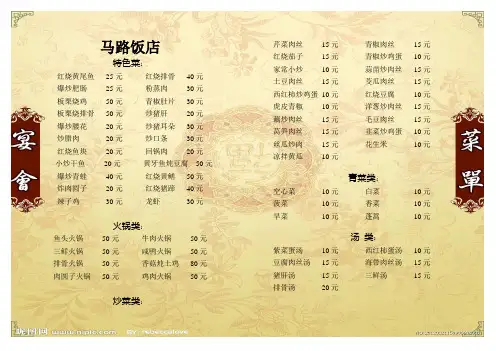 马路饭店
特色菜:
红烧黄尾鱼 25元 红烧排骨 40元
爆炒肥肠 25元 粉蒸肉 30元
板栗烧鸡 50元 青椒肚片 30元
板栗烧排骨 50元 炒猪肝 20元
爆炒腰花 20元 炒猪耳朵 30元
炒腊肉 20元 炒口条 30元
红烧鱼块 20元 回锅肉 20元
小炒干鱼 20元 黄牙鱼炖豆腐 50元
爆炒青蛙 40元 红烧黄鳝 50元
炸肉圆子 20元 红烧猪蹄 40元
辣子鸡 30元 龙虾 30元
火锅类:
鱼头火锅 50元 牛肉火锅 50元
三鲜火锅 50元 咸鸭火锅 50元
排骨火锅 50元 香菇炖土鸡 80元
肉圆子火锅 50元 鸡肉火锅 50元
炒菜类:
芹菜肉丝 15元 青椒肉丝 15元
红烧茄子 15元 青椒炒鸡蛋 10元
家常小炒 10元 蒜苗炒肉丝 10元
土豆肉丝 15元 茭瓜肉丝 15元
西红柿炒鸡蛋 10元 红烧豆腐 10元
虎皮青椒 10元 洋葱炒肉丝 15元
藕炒肉丝 15元 毛豆肉丝 15元
莴笋肉丝 15元 韭菜炒鸡蛋 10元
丝瓜炒肉 15元 花生米 10元
凉拌黄瓜 10元
青菜类:
空心菜 10元 白菜 10元
菠菜 10元 香菜 10元
早菜 10元 蓬蒿 10元
汤 类:
紫菜蛋汤 10元 西红柿蛋汤 10元
豆腐肉丝汤 15元 海带肉丝汤 15元
猪肝汤 15元 三鲜汤 15元
排骨汤 20元
宴會
菜單
昵图网 www.nipic.com